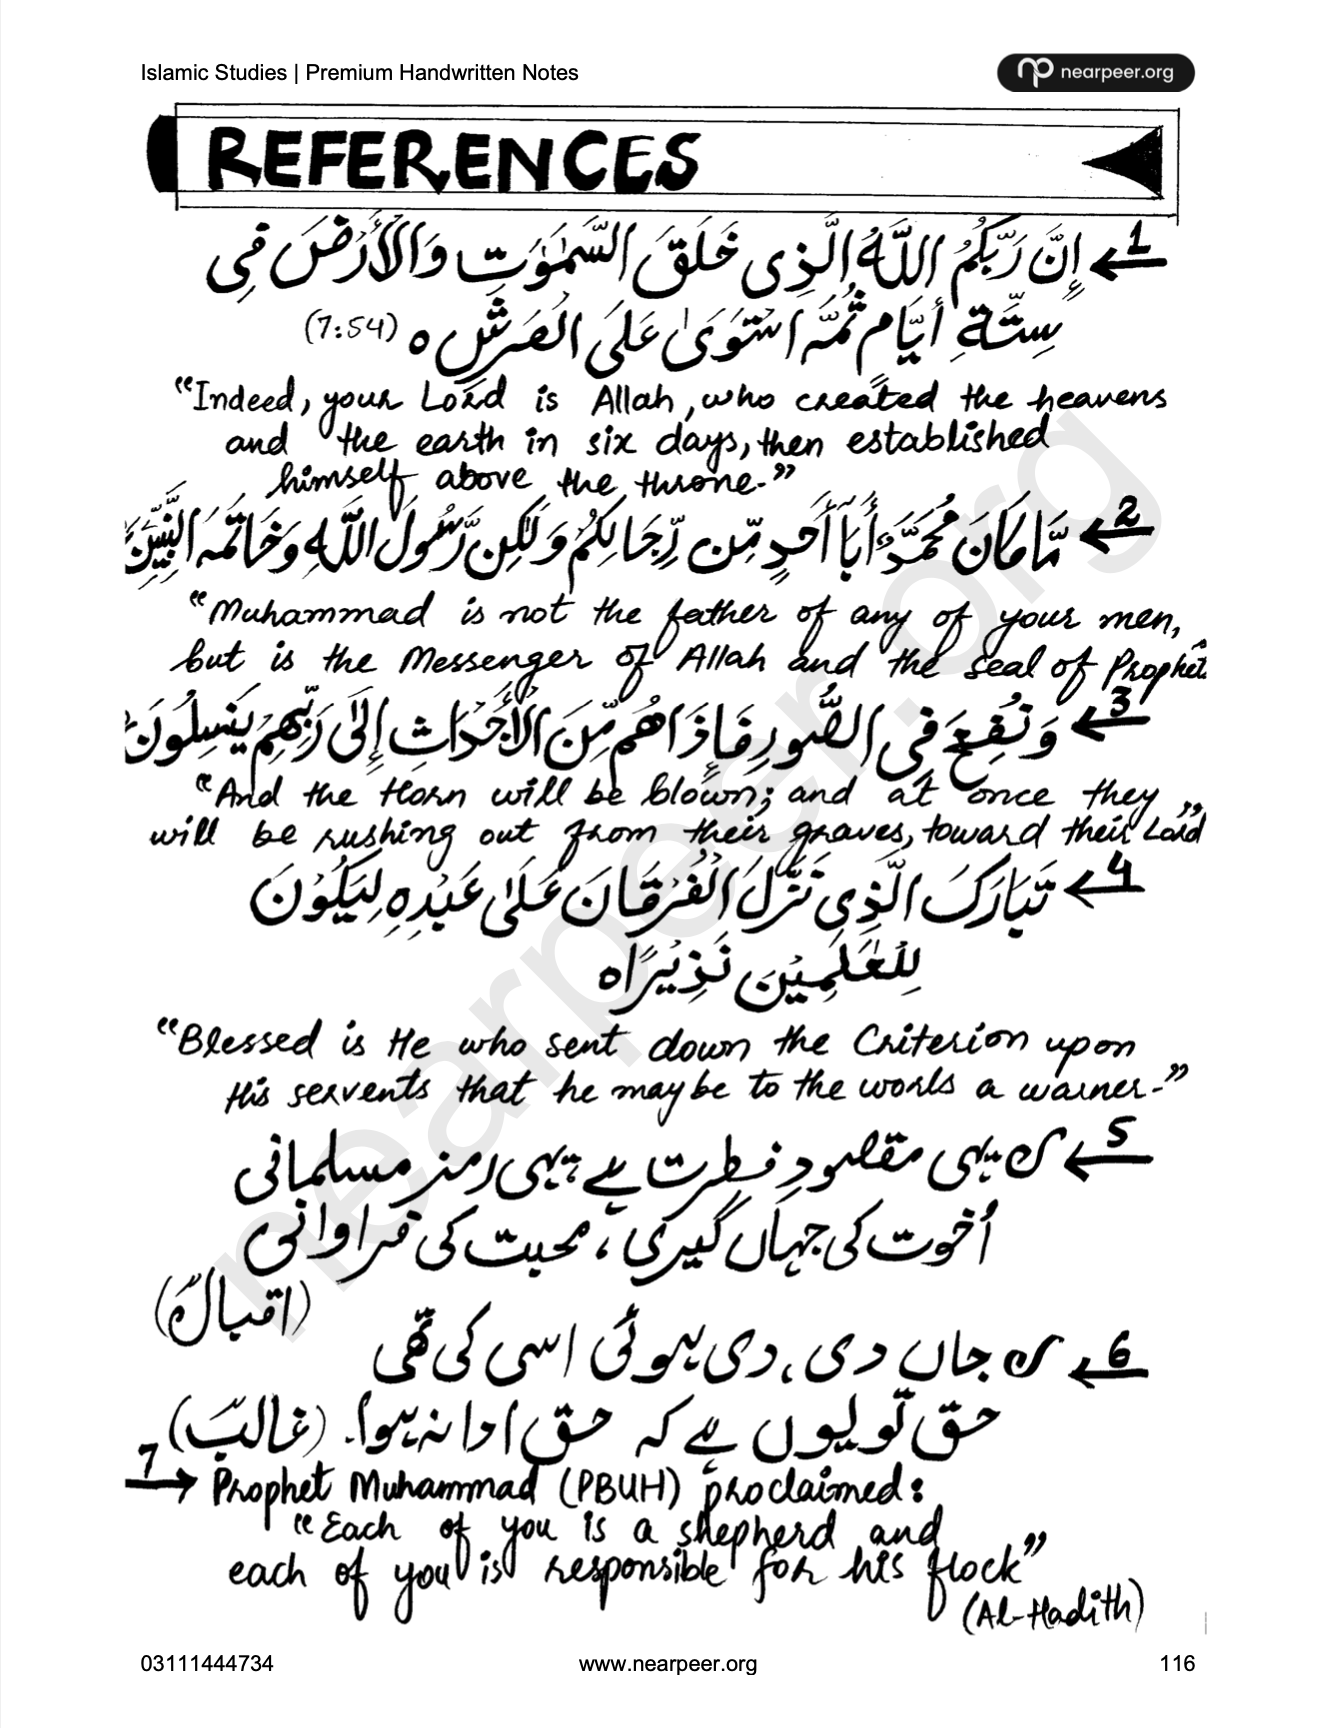 Islamic Studies | Premium Handwritten Notes
nearpeer.org
REFERENCES
1 إِنَّ رَبَّكُمُ اللَّهُ الَّذِي خَلَقَ السَّمٰوٰتِ وَالْأَرْضَ فِي
سِتَّةِ أَيَّامٍ ثُمَّ اسْتَوَىٰ عَلَى الْعَرْشِ ه (7:54)
"Indeed, your Lord is Allah, who created the heavens
and the earth in six days, then established
himself above the throne."
2 مَّا كَانَ مُحَمَّدٌ أَبَا أَحَدٍ مِّن رِّجَالِكُمْ وَلَٰكِن رَّسُولَ اللَّهِ وَخَاتَمَ النَّبِيِّينَ
"Muhammad is not the father of any of your men,
but is the Messenger of Allah and the seal of Prophets
3 وَنُفِخَ فِي الصُّورِ فَإِذَا هُم مِّنَ الْأَجْدَاثِ إِلَىٰ رَبِّهِمْ يَنسِلُونَ
"And the Horn will be blown; and at once they
will be rushing out from their graves, toward their Lord"
4 تَبَارَكَ الَّذِي نَزَّلَ الْفُرْقَانَ عَلَىٰ عَبْدِهِ لِيَكُوْنَ
لِلْعٰلَمِيْنَ نَذِيْرًا ه
"Blessed is He who sent down the Criterion upon
His servents that he may be to the worlds a warner."
5 یہی مقصودِ فطرت ہے یہی رمزِ مسلمانی
اُخوت کی جہاں گیری، محبت کی فراوانی
(اقبالؒ)
6 جاں دی، دی ہوئی اسی کی تھی
حق تو یوں ہے کہ حق ادا نہ ہوا۔ (غالبؔ)
7 → Prophet Muhammad (PBUH) proclaimed:
"Each of you is a shepherd and
each of you is responsible for his flock"
(Al-Hadith)
03111444734
www.nearpeer.org
116
nearpeer.org